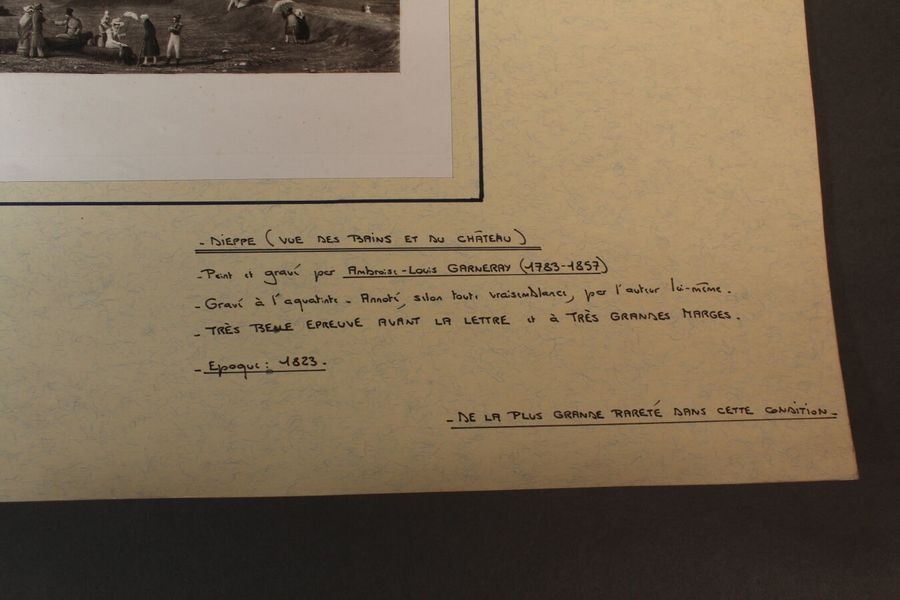 - DIEPPE ( VUE DES BAINS ET DU CHÂTEAU )
- Peint et gravé par Ambroise-Louis GARNERAY (1783-1857)
- Gravé à l'aquatinte - Annoté, selon toute vraisemblance, par l'auteur lui-même.
- TRÈS BELLE EPREUVE AVANT LA LETTRE et à TRÈS GRANDES MARGES.
- Epoque : 1823.
- DE LA PLUS GRANDE RARETÉ DANS CETTE CONDITION -